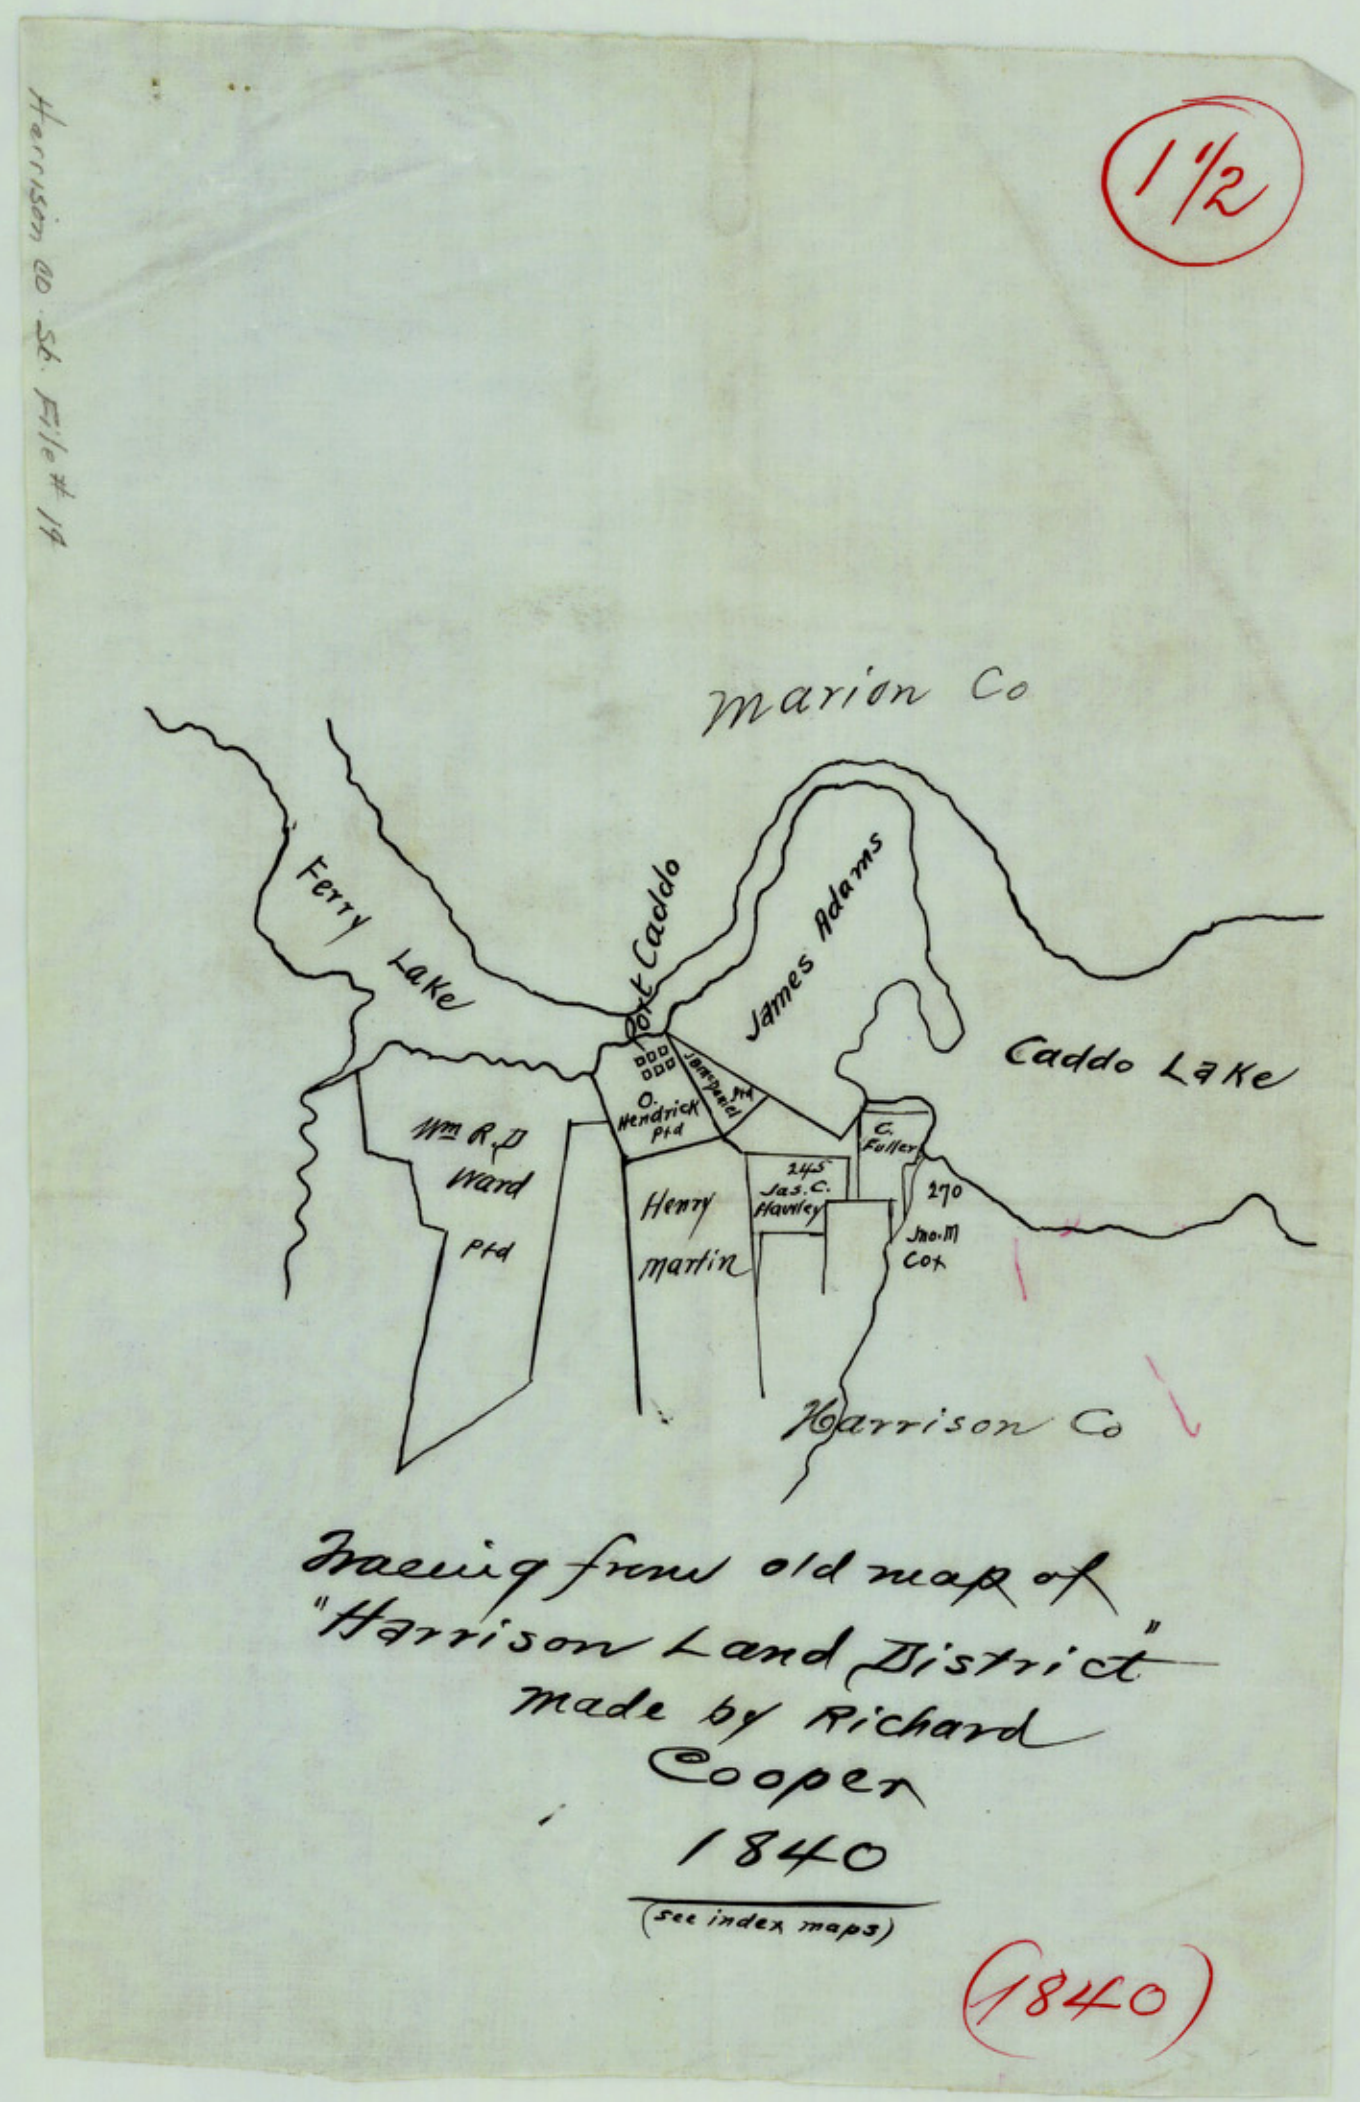 Harrison Co. Sk. File # 19
1 1/2
Marion Co
Ferry
Lake
Port Caddo
James Adams
Caddo Lake
Ptd
O.
Hendrick
Ptd
Wm R. D
Ward
Ptd
Henry
Martin
245
Jas. C.
C.
Fuller
270
Jno. M
Cox
Harrison Co
Tracing from old map of
"Harrison Land District"
made by Richard
Cooper
1840
(see index maps)
(1840)